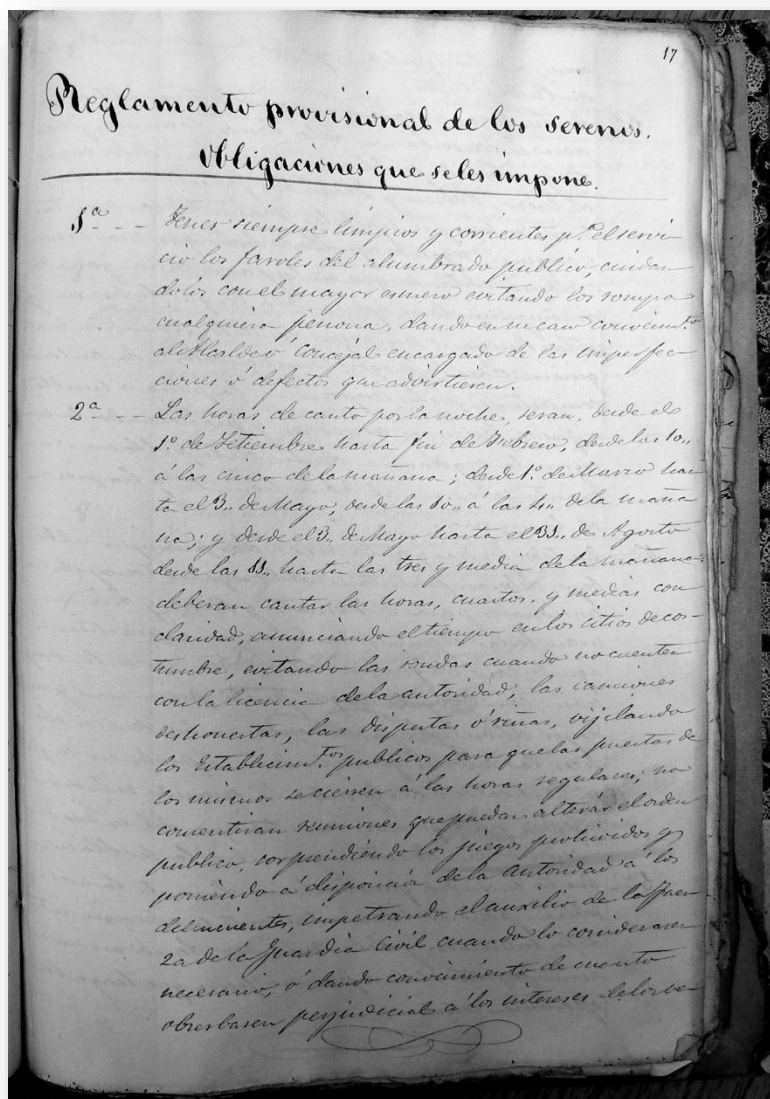 17
Reglamento provisional de los serenos.
Obligaciones que se les impone.
1ª Tener siempre limpios y corrientes p.ª el servi-
cio los faroles del alumbrado publico, cuidan
dolos con el mayor esmero evitando los rompa
cualquiera persona, dando en su caso conocim.to
al Alcalde ó Concejal encargado de las imperfec-
ciones ó defectos que advirtieren.
2ª Las horas de canto por la noche, seran, desde el
1º de Setiembre hasta fin de Febrero, desde las 10,,
á las cinco de la mañana; desde 1º de Marzo has
ta el 3,, de Mayo, desde las 10,, á las 4,, de la maña
na; y desde el 3,, de Mayo hasta el 31,, de Agosto
desde las 11,, hasta las tres y media de la mañana:
deberan cantar las horas, cuartos, y medias con
claridad, anunciando el tiempo en los citios de cos-
tumbre, evitando las rondas cuando no cuenten
con la licencia de la autoridad, las canciones
deshonestas, las disputas ó riñas, vijilando
los Establecim.tos publicos para que las puertas de
los mismos se cierren á las horas regulares; no
consentiran reuniones que puedan alterar el orden
publico, sorprendiendo los juegos prohividos y
poniendo á disposicion de la Autoridad á los
delincuentes, impetrando el auxilio de la fuer-
za de la Guardia Civil cuando lo consideraren
necesario, ó dando conocimiento de cuanto
obserbasen perjudicial á los intereses de los ve-